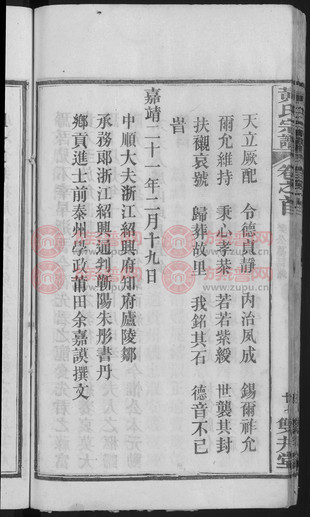 黄氏宗譜
卷之首
雙井堂
天立厥配　令德貞靜　内治夙成　錫爾祚允
爾允維持　秉心孝恭　若若紫綬　世襲其封
扶櫬哀號　歸葬故里　我銘其石　德音不已
旹
嘉靖二十一年二月十九日
中順大夫浙江紹興府知府廬陵鄒
承務郎浙江紹興通判衡陽朱彤書丹
鄉貢進士前泰州學政莆田余嘉謨撰文
www.zupu.cn